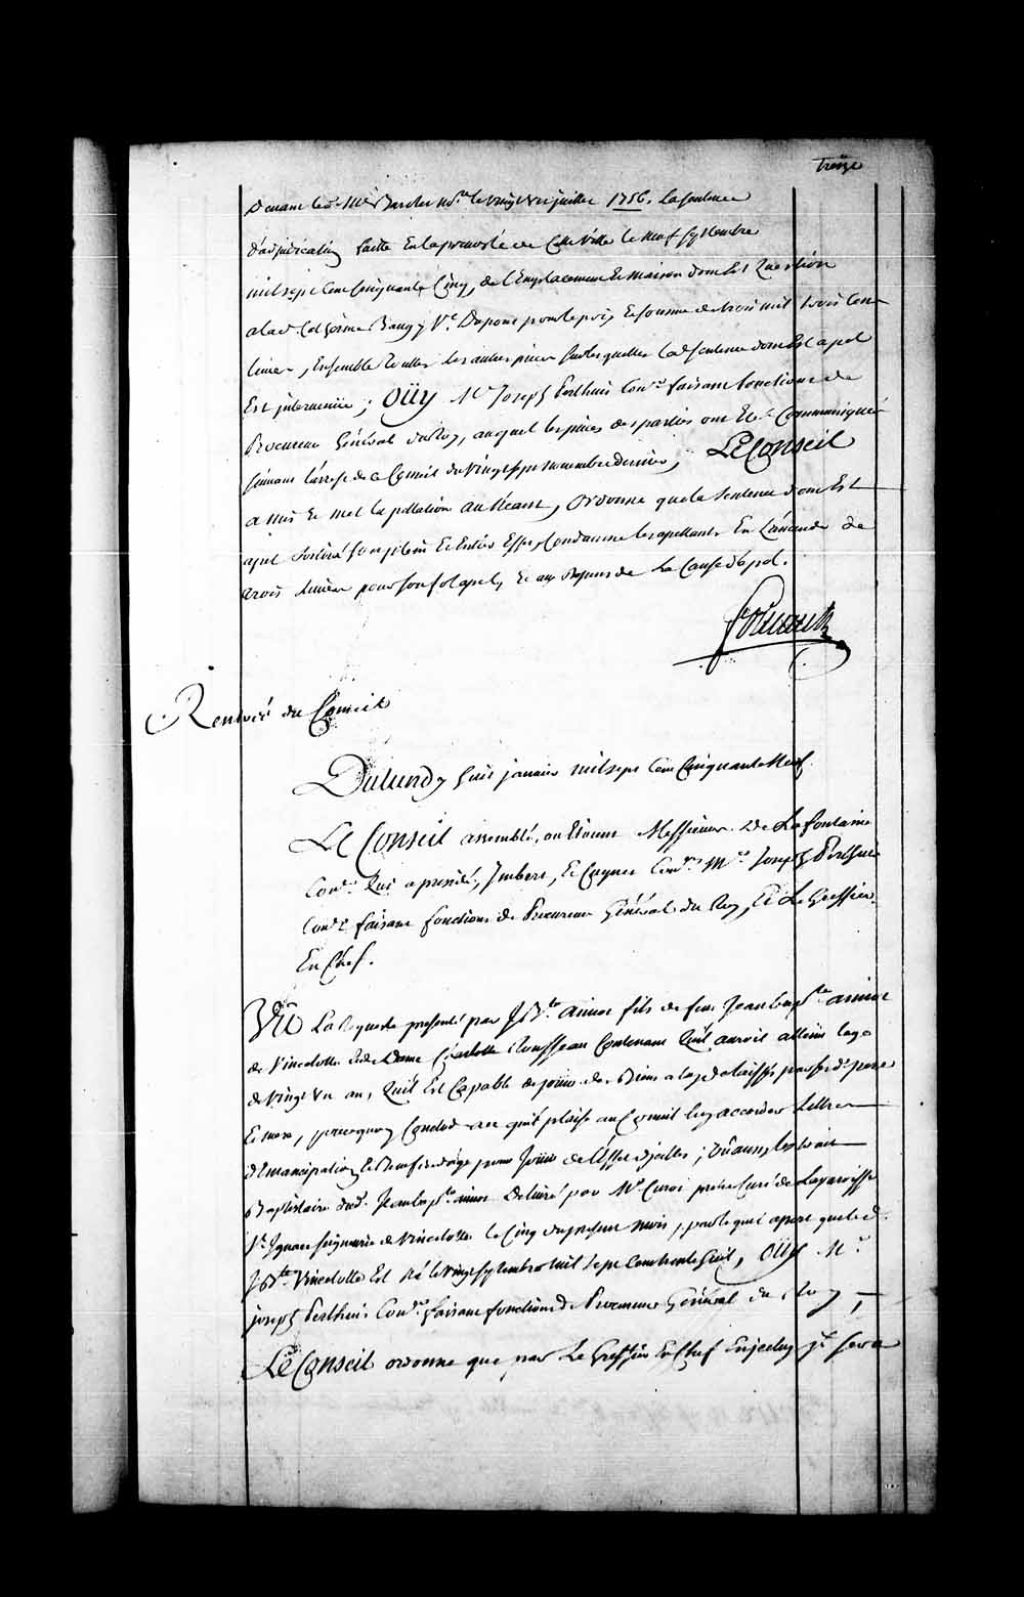 treize
devant led. Me Barolet nore le vingt un juillet 1756. La sentence
d'adjudication faitte En la prevosté de Cette Ville le neuf septembre
mil sept Cent Cinquante Cinq, de l'Emplacement Et maison dont Est Question
a lad. Ve Dupont pour le prix Et somme de trois mil trois Cent
livres, Ensemble toutes les autres pieces sur lesquelles lad. sentence dont Est apel
Est intervenüe; Oüy Me Joseph Perthuis Conser faisant fonctions de
Procureur Général du Roy, auquel les pieces des parties ont Eté Communiquées
suivant l'arrest de ce Conseil du Vingt sept novembre dernier; Le Conseil
a mis Et met l'apellation au Néant, ordonne que la sentence dont Est
apel sortira son plein Et Entier Effet, Condamne les apellants En L'amande de
trois Livres pour son fol apel, Et aux depens de La Cause d'apel.
Rentrée du Conseil
Du lundy huit janvier mil sept Cent Cinquante Neuf.
Le Conseil assemblé, ou Etoient Messieurs De Lafontaine
Conser Qui a presidé, Imbert, Et Cugnet Consers Me Joseph Perthuis
Conser faisant fonctions de Procureur Général du Roy, Et Le Greffier
En Chef.
Vû La Requeste presenté par J. Bte amiot fils de feu Jean bapte amiot
de Vincelotte Et de Dame Charlotte Rousseau Contenant Qu'il auroit atteint l'age
de Vingt un ans, Qu'il Est Capable de joüir des Biens a luy delaissés par ses d. pere
Et mere, pourquoy Conclud a ce qu'il plaise au Conseil luy accorder Lettres
d'Emancipation Et Benefice d'age pour Joüir de l'Effet d'jcelles; Vû aussy l'extrait
Baptistaire dud. Jean bapte amiot Delivré par Mr Curot prestre Curé de La paroisse
St Ignace seigneurie de Vincelotte le Cinq du present mois, par lequel apert que led.
J. Bte Vincelotte Est né le Vingt septembre mil sept Cent trente huit, Oüy Me
joseph Perthuis Conser faisant fonctions de Procureur Général du Roy;
Le Conseil ordonne que par Le Greffier En Chef Enjceluy jl sera